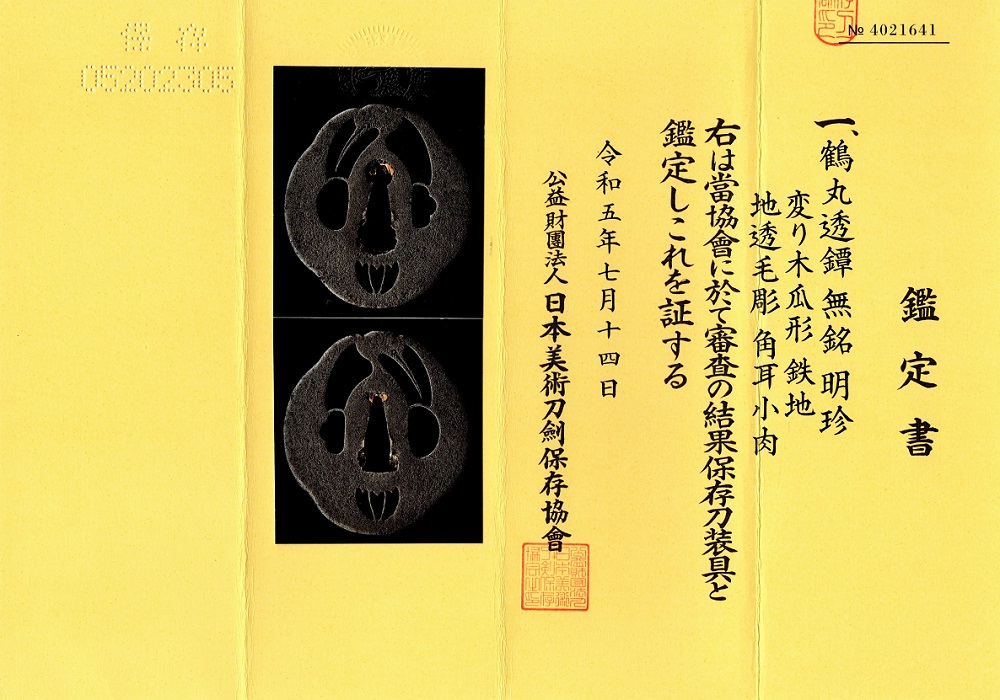 № 4021641
鑑定書
一、鶴丸透鐔 無銘 明珍
変り木瓜形 鉄地
地透毛彫 角耳小肉
右は當協會に於て審査の結果保存刀装具と
鑑定しこれを証する
令和五年七月十四日
公益財團法人 日本美術刀劍保存協會
保存
05202305